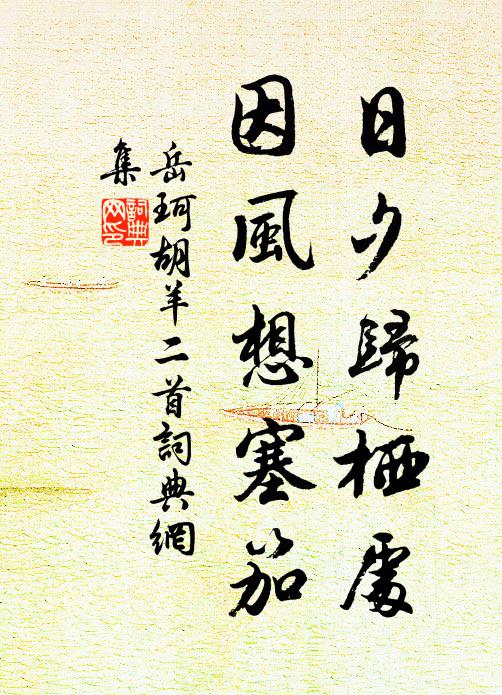 日夕歸栖處
因風想塞笳
岳珂胡羊二首詞典網
集
詞典
网印